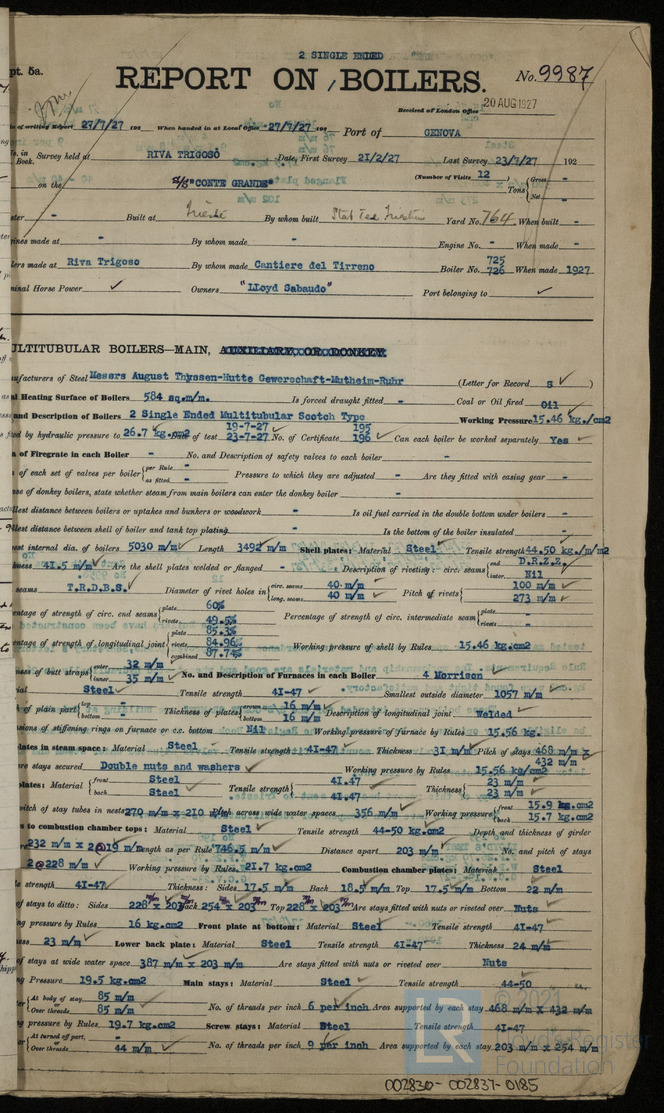 2 SINGLE ENDED
pt. 5a.
REPORT ON BOILERS.
No. 9987
Received at London Office 20 AUG 1927
te of writing Report 27/7/27 192 When handed in at Local Office 27/7/27 192 Port of GENOVA
Survey held at RIVA TRIGOSO Date, First Survey 21/2/27 Last Survey 23/7/27 192
Book.
on the S/S "CONTE GRANDE" (Number of Visits 12 ) Tons { Gross - Net -
ster - Built at Trieste By whom built Stab Tec Triestino Yard No. 764 When built -
gines made at - By whom made - Engine No. - When made -
lers made at Riva Trigoso By whom made Cantiere del Tirreno Boiler No. 725 726 When made 1927
minal Horse Power ✓ Owners "Lloyd Sabaudo" Port belonging to ✓
ULTITUBULAR BOILERS—MAIN, AUXILIARY OR DONKEY
nufacturers of Steel Messrs August Thyssen-Hutte Gewerschaft-Mutheim-Ruhr (Letter for Record S ✓ )
al Heating Surface of Boilers 584 sq.m/m. Is forced draught fitted - Coal or Oil fired Oil
and Description of Boilers 2 Single Ended Multitubular Scotch Type Working Pressure 15.46 kg./cm2
ted by hydraulic pressure to 26.7 kg.cm2 of test 19-7-27 23-7-27 No. of Certificate 195 196 Can each boiler be worked separately Yes ✓
a of Firegrate in each Boiler - No. and Description of safety valves to each boiler -
a of each set of valves per boiler { per Rule - as fitted - Pressure to which they are adjusted - Are they fitted with easing gear -
ase of donkey boilers, state whether steam from main boilers can enter the donkey boiler -
llest distance between boilers or uptakes and bunkers or woodwork - Is oil fuel carried in the double bottom under boilers -
llest distance between shell of boiler and tank top plating - Is the bottom of the boiler insulated -
est internal dia. of boilers 5030 m/m Length 3492 m/m Shell plates: Material Steel Tensile strength 44.50 kg./m/m2
kness 41.5 m/m Are the shell plates welded or flanged - Description of riveting: circ. seams { end D.R.Z.Z. inter. Nil
seams T.R.D.B.S. Diameter of rivet holes in { circ. seams 40 m/m long. seams 40 m/m Pitch of rivets { 100 m/m 273 m/m
centage of strength of circ. end seams { plate 60% rivets 49.5% Percentage of strength of circ. intermediate seam { plate - rivets -
entage of strength of longitudinal joint { plate 85.3% rivets 84.96% combined 87.74% Working pressure of shell by Rules 15.46 kg.cm2
ness of butt straps { outer 32 m/m inner 35 m/m No. and Description of Furnaces in each Boiler 4 Morrison
ial Steel Tensile strength 41-47 Smallest outside diameter 1057 m/m
h of plain part { top - bottom - Thickness of plates { crown 16 m/m bottom 16 m/m Description of longitudinal joint Welded
sions of stiffening rings on furnace or c.c. bottom Nil Working pressure of furnace by Rules 15.56 kg.
lates in steam space: Material Steel Tensile strength 41-47 Thickness 31 m/m Pitch of stays 468 m/m x 432 m/m
are stays secured Double nuts and washers Working pressure by Rules 15.56 kg/cm2
plates: Material { front Steel back Steel Tensile strength { 41.47 41.47 Thickness { 23 m/m 23 m/m
pitch of stay tubes in nests 270 m/m x 210 Pitch across wide water spaces 356 m/m Working pressure { front 15.9 kg.cm2 back 15.7 kg.cm2
s to combustion chamber tops: Material Steel Tensile strength 44-50 kg.cm2 Depth and thickness of girder
232 m/m x 2@19 m/m Length as per Rule 746.5 m/m Distance apart 203 m/m No. and pitch of stays
2@228 m/m Working pressure by Rules 21.7 kg.cm2 Combustion chamber plates: Material Steel
e strength 41-47 Thickness: Sides 17.5 m/m Back 18.5 m/m Top 17.5 m/m Bottom 22 m/m
of stays to ditto: Sides 228 x 203 Back 254 x 203 Top 228 x 203 Are stays fitted with nuts or riveted over Nuts
ng pressure by Rules 16 kg.cm2 Front plate at bottom: Material Steel Tensile strength 41-47
ess 23 m/m Lower back plate: Material Steel Tensile strength 41-47 Thickness 24 m/m
of stays at wide water space 387 m/m x 203 m/m Are stays fitted with nuts or riveted over Nuts
ng Pressure 19.5 kg.cm2 Main stays: Material Steel Tensile strength 44-50
{ At body of stay 85 m/m Over threads 85 m/m No. of threads per inch 6 per inch Area supported by each stay 468 m/m x 432 m/m
g pressure by Rules 19.7 kg.cm2 Screw stays: Material Steel Tensile strength 41-47
{ At turned off part - Over threads 44 m/m No. of threads per inch 9 per inch Area supported by each stay 203 m/m x 254 m/m
© 2021
LR Lloyd's Register
Foundation
002830-002837-0185